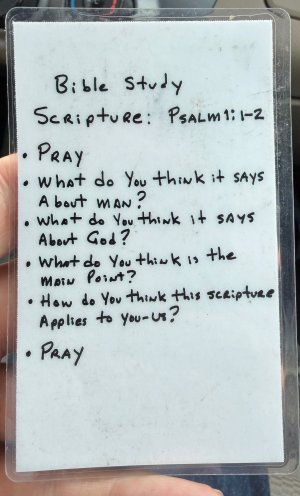 Bible Study
Scripture: Psalm 1:1-2
• Pray
• What do You think it says
About man?
• What do You think it says
About God?
• What do You think is the
Main Point?
• How do You think this scripture
Applies to you-us?
• Pray